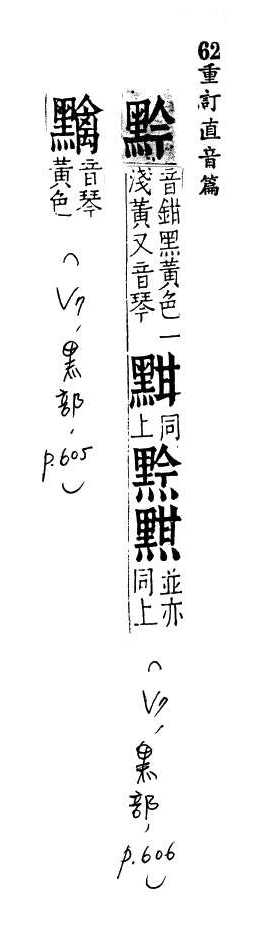 62重訂直音篇
黅
音鉗黑黃色一
淺黃又音琴
黚
同
上
並亦
同上
(V7,黑部,p.606)
音琴
黃色
(V7,黑部,p.605)